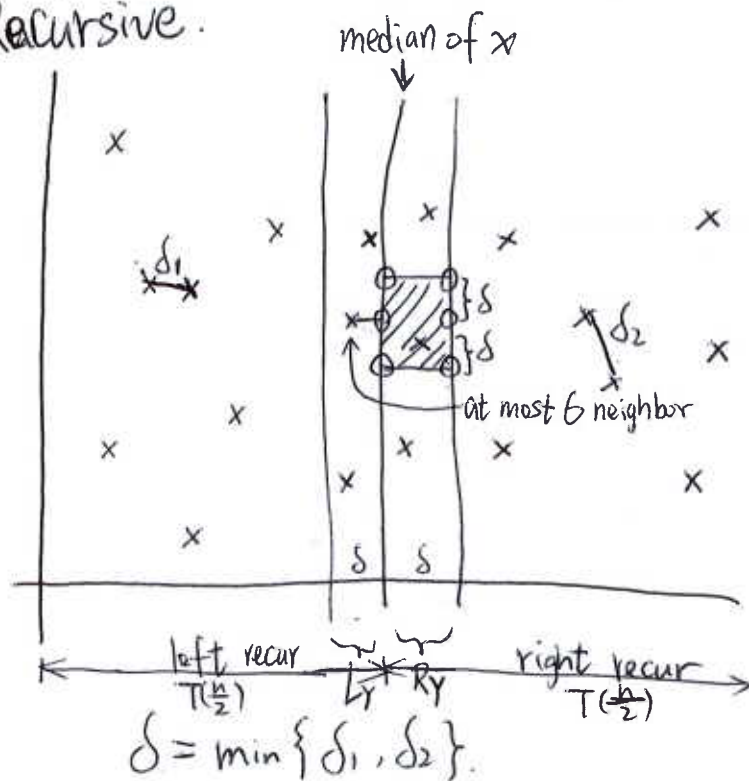 Recursive.
median of x
δ₁
δ
δ
δ₂
at most 6 neighbor
δ δ
left recur L_Y R_Y right recur
T(n/2) T(n/2)
δ = min {δ₁, δ₂}.